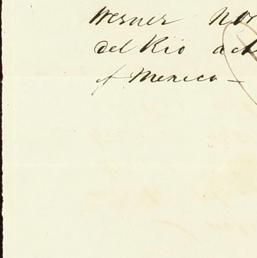 Werner Nor
del Rio act
of Mexico –